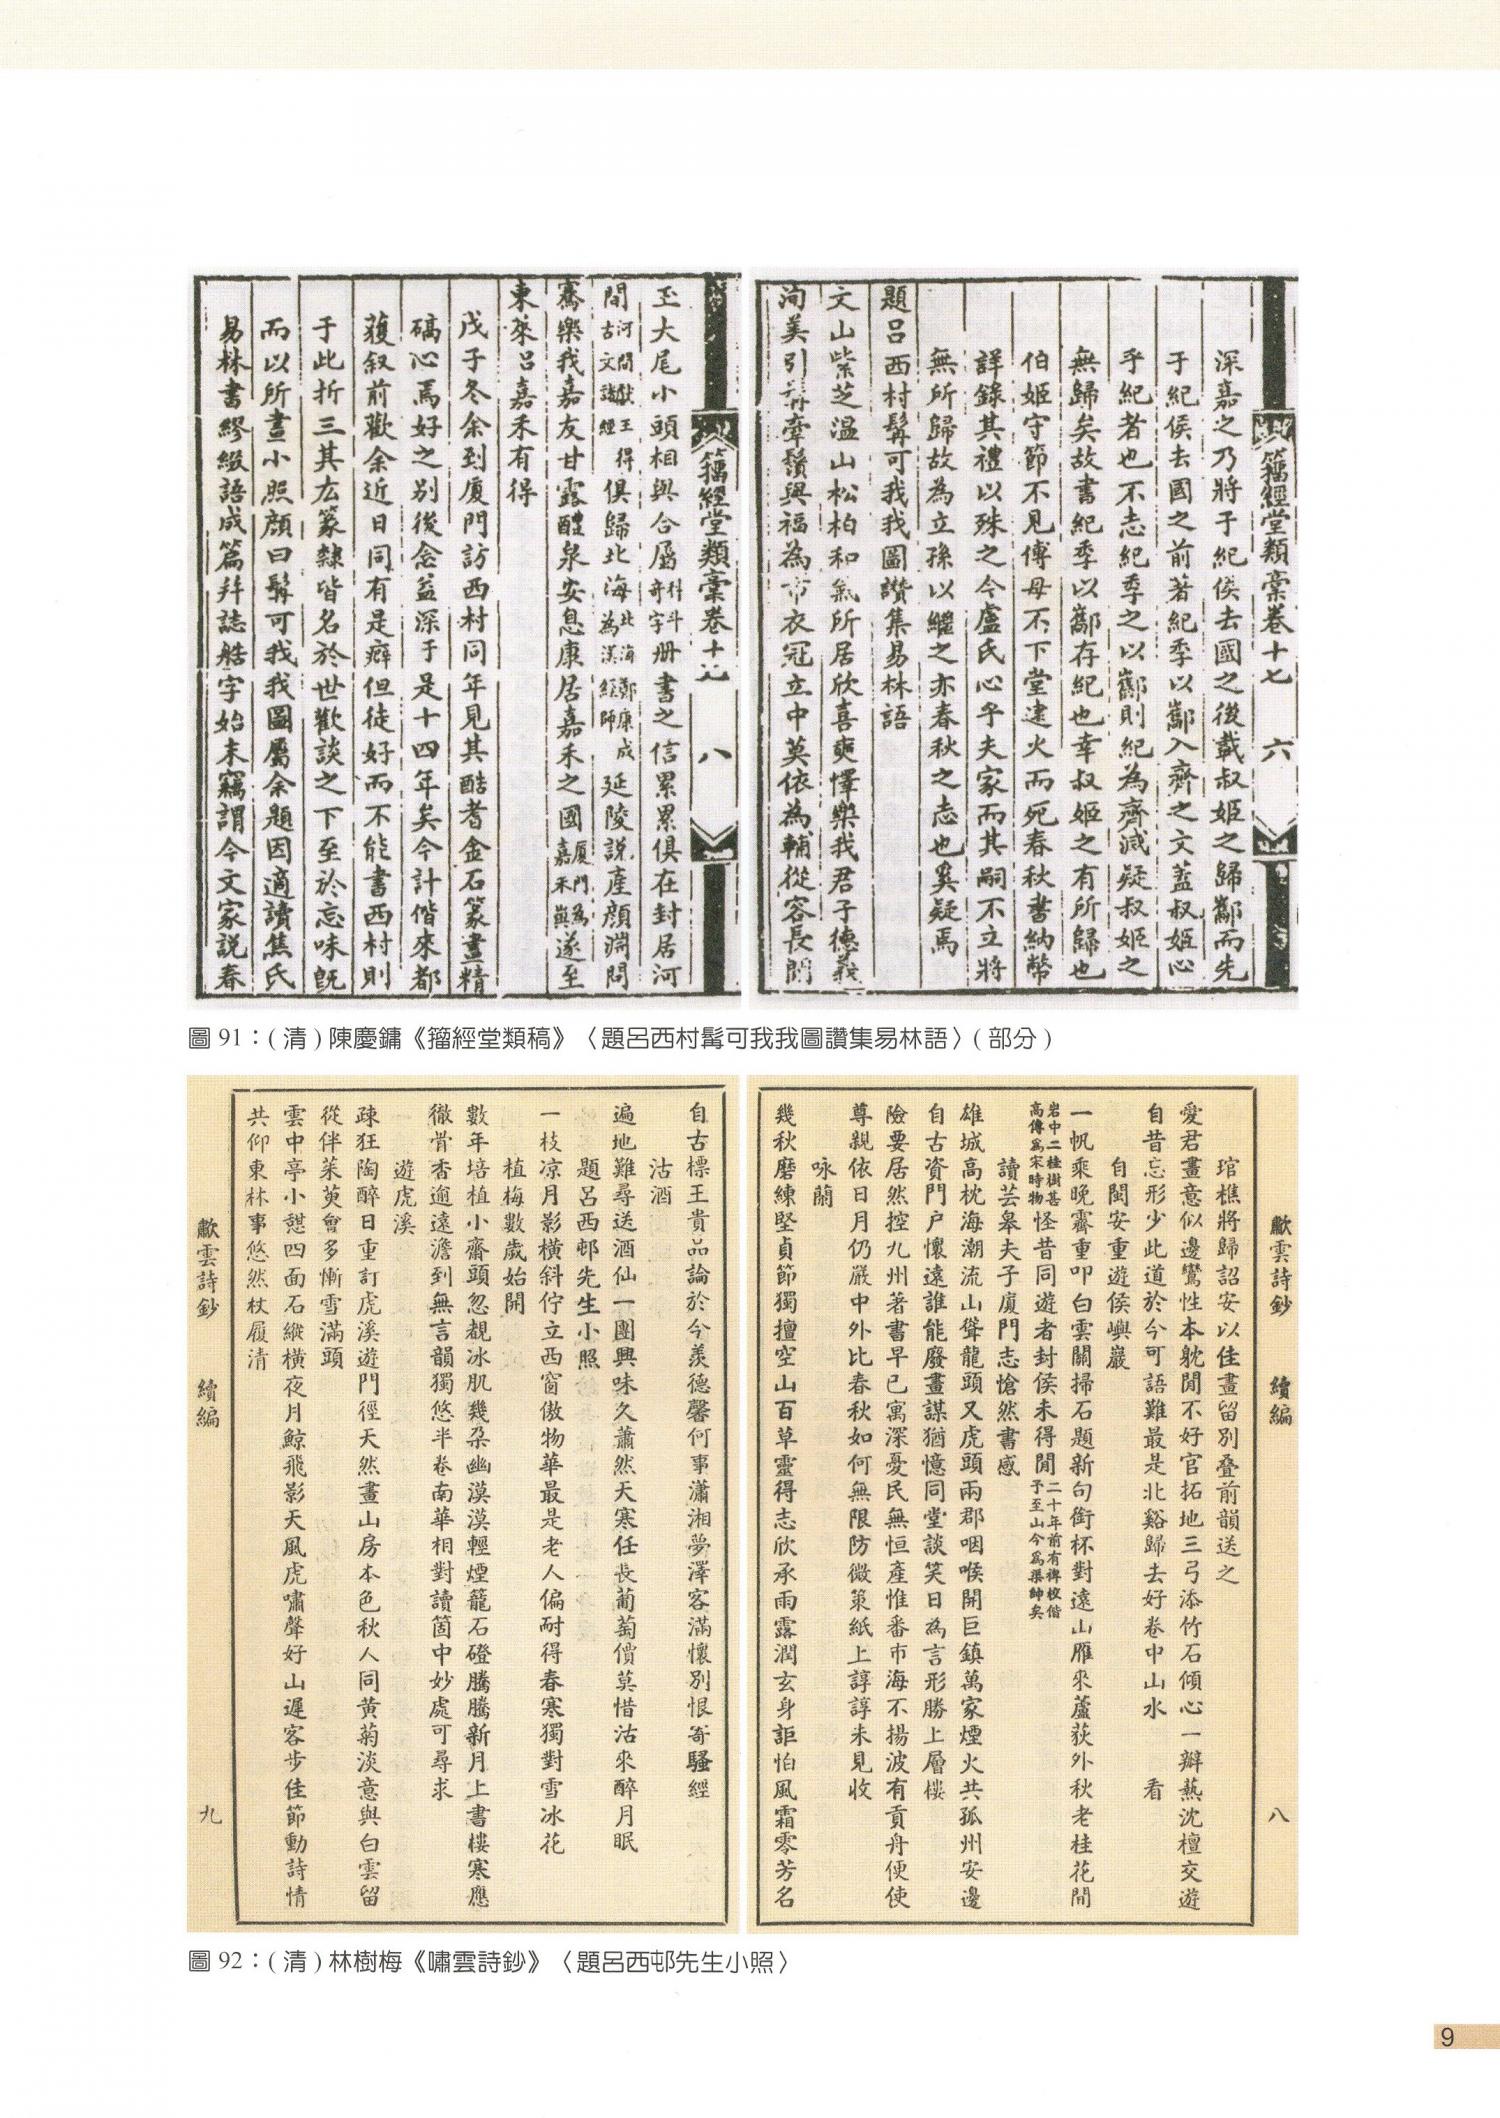 籀經堂類稾卷十七　六
深嘉之乃將于紀侯去國之後載叔姬之歸酅而先
于紀侯去國之前著紀季以酅入齊之文蓋叔姬心
乎紀者也不志紀季之以酅則紀為齊滅疑叔姬之
無歸矣故書紀季以酅存紀也幸叔姬之有所歸也
伯姬守節不見傅母不下堂逮火而死春秋書納幣
詳錄其禮以殊之今盧氏心乎夫家而其嗣不立將
無所歸故為立孫以繼之亦春秋之志也奚疑焉
題呂西村髯可我我圖讚集易林語
文山紫芝温山松柏和氣所居欣喜爽懌樂我君子德義
洵美引髯牽鬚與福為市衣冠立中莫依為輔從容長閒
籀經堂類稾卷十七　八
玉大尾小頭相與合屬科斗奇字册書之信累累俱在封居河
間河間獻王得古文讖經俱歸北海北海鄭康成為漢經師延陵說產顔淵問
騫樂我嘉友甘露醴泉安息康居嘉禾之國厦門為嘉禾嶼遂至
東萊呂嘉禾有得
戊子冬余到厦門訪西村同年見其酷耆金石篆畫精
碻心焉好之别後念益深于是十四年矣今計偕來都
蒦叙前歡余近日同有是癖但徒好而不能書西村則
于此折三其厷篆隸皆名於世歡談之下至於忘味旣
而以所畫小照顔曰髯可我我圖屬余題因適讀焦氏
易林書繆綴語成篇幷誌餂字始末竊謂今文家説春
圖 91：( 清 ) 陳慶鏞《籀經堂類稿》〈題呂西村髯可我我圖讚集易林語〉( 部分 )
歗雲詩鈔　續編　八
琯樵將歸詔安以佳畫留別叠前韻送之
愛君畫意似邊鸞性本躭閒不好官拓地三弓添竹石傾心一瓣熱沈檀交遊
自昔忘形少此道於今可語難最是北谿歸去好卷中山水　看
自閩安重遊侯嶼巖
一帆乘晚霽重叩白雲關掃石題新句銜杯對遠山雁來蘆荻外秋老桂花間
岩中二桂樹甚高傳爲宋時物怪昔同遊者封侯未得閒二十年前有裨校偕予至山今爲渠帥矣
讀芸皋夫子廈門志愴然書感
雄城高枕海潮流山聳龍頭又虎頭兩郡咽喉開巨鎮萬家煙火共孤州安邊
自古資門户懷遠誰能廢畫謀猶憶同堂談笑日為言形勝上層樓
險要居然控九州著書早已寓深憂民無恒產惟番市海不揚波有貢舟便使
尊親依日月仍嚴中外比春秋如何無限防微策紙上諄諄未見收
咏蘭
幾秋磨練堅貞節獨擅空山百草靈得志欣承雨露潤玄身詎怕風霜零芳名
自古標王貴品論於今羨德馨何事瀟湘夢澤客滿懷別恨寄騷經
沽酒
遍地難尋送酒仙一團興味久蕭然天寒任長葡萄價莫惜沽來醉月眠
題呂西邨先生小照
一枝凉月影橫斜佇立西窗傲物華最是老人偏耐得春寒獨對雪冰花
植梅數歲始開
數年培植小齋頭忽覩冰肌幾朵幽漠漠輕煙籠石磴騰騰新月上書樓寒應
徹骨香逾遠澹到無言韻獨悠半卷南華相對讀箇中妙處可尋求
遊虎溪
疎狂陶醉日重訂虎溪遊門徑天然畫山房本色秋人同黃菊淡意與白雲留
從伴茱萸會多慚雪滿頭
雲中亭小憩四面石縱橫夜月鯨飛影天風虎嘯聲好山遲客步佳節動詩情
共仰東林事悠然杖履清
歗雲詩鈔　續編　九
圖 92：( 清 ) 林樹梅《嘯雲詩鈔》〈題呂西邨先生小照〉
9